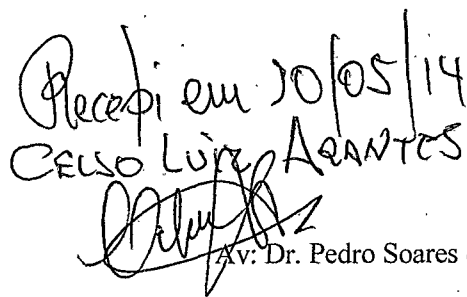 Recebi em 30/05/14
CELSO LUIZ ARANTES
Av: Dr. Pedro Soares